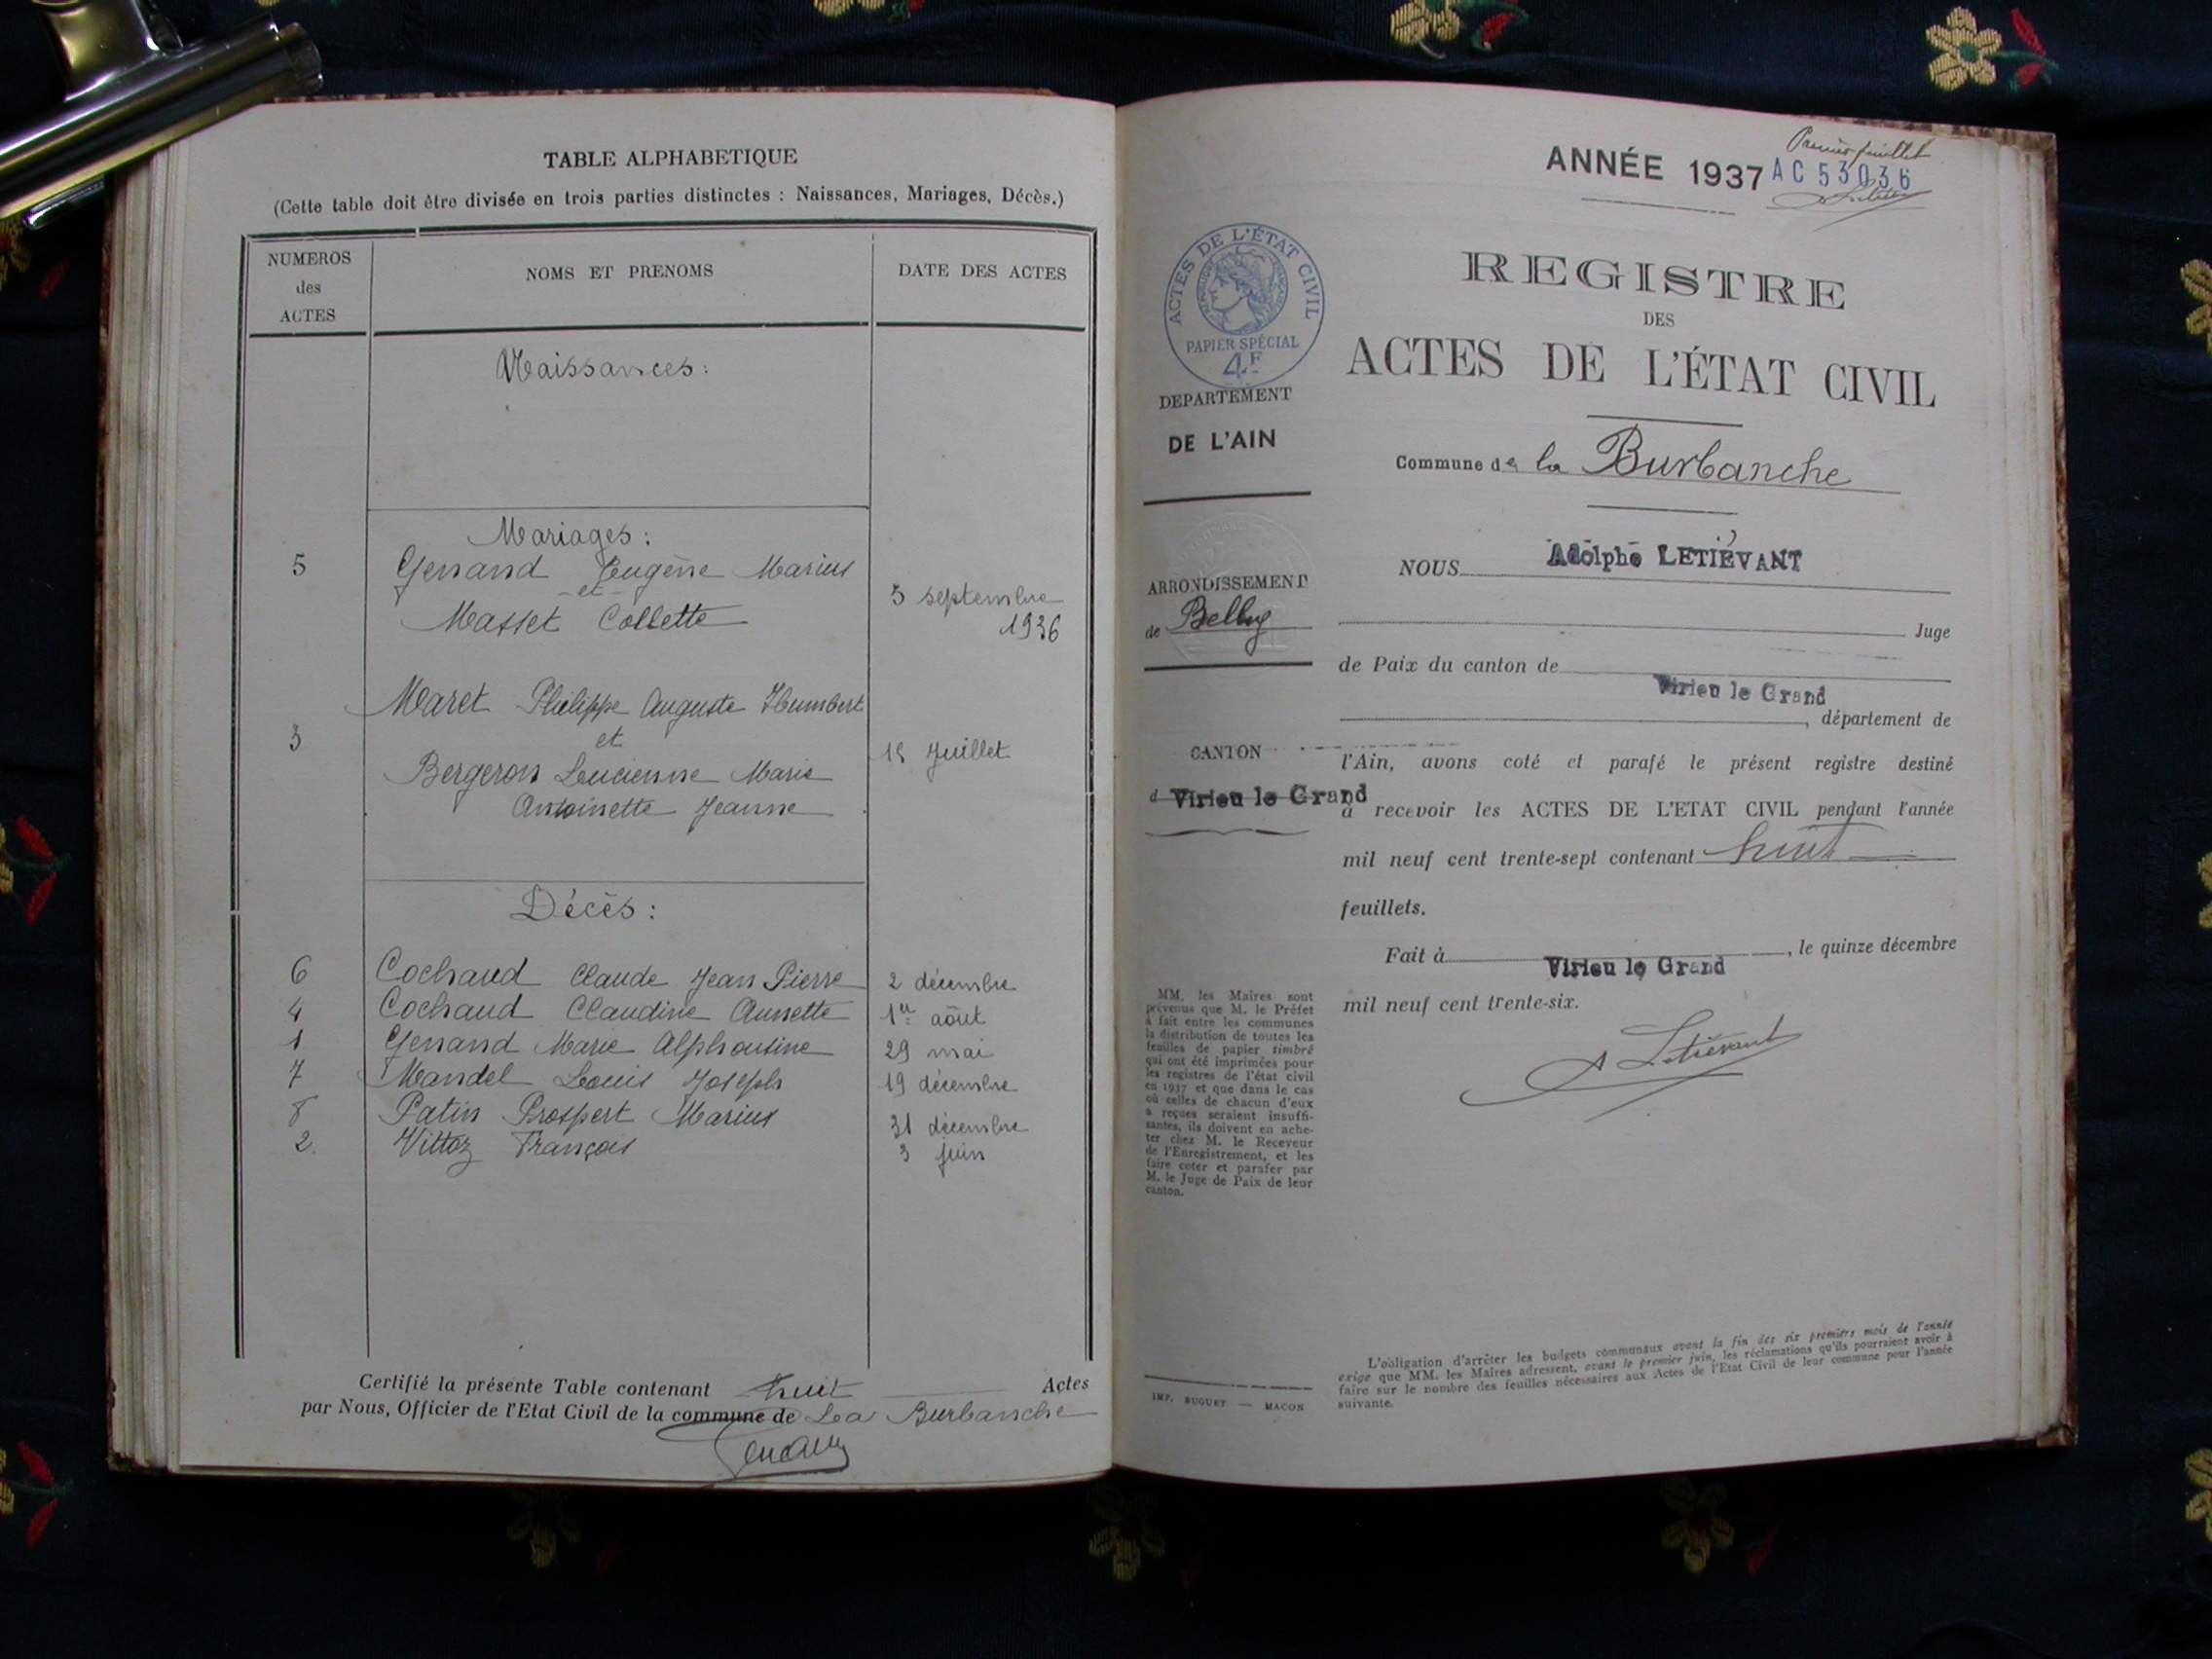 TABLE ALPHABETIQUE
(Cette table doit être divisée en trois parties distinctes : Naissances, Mariages, Décès.)
NUMEROS des ACTES
NOMS ET PRENOMS
DATE DES ACTES
Naissances :
Mariages :
5 Genand Eugène Marius
et
Masset Collette
5 septembre
1936
Maret Philippe Auguste Humbert
3 et
15 Juillet
Bergeron Lucienne Marie
Antoinette Jeanne
Décès :
6 Cochaud Claude Jean Pierre 2 décembre
4 Cochaud Claudine Annette 1er aôut
1 Genand Marie Alphonsine 29 mai
7 Mandel Louis Joseph 19 décembre
8 Patin Prospert Marius 31 décembre
2. Vittoz François 3 juin
Certifié la présente Table contenant huit Actes
par Nous, Officier de l'Etat Civil de la commune de La Burbanche
Premier feuillet
ANNÉE 1937 AC 53036
REGISTRE
DES
ACTES DE L'ÉTAT CIVIL
ACTES DE L'ÉTAT CIVIL
PAPIER SPÉCIAL
4F
DEPARTEMENT
DE L'AIN
Commune de la Burbanche
NOUS Adolphe LETIÉVANT
ARRONDISSEMENT
de Belley
Juge
de Paix du canton de
Virieu le Grand
, département de
CANTON
d Virieu le Grand
l'Ain, avons coté et parafé le présent registre destiné
à recevoir les ACTES DE L'ETAT CIVIL pendant l'année
mil neuf cent trente-sept contenant huit
feuillets.
Fait à Virieu le Grand, le quinze décembre
mil neuf cent trente-six.
A Letiévant
MM. les Maires sont
prévenus que M. le Préfet
a fait entre les communes
la distribution de toutes les
feuilles de papier timbré
qui ont été imprimées pour
les registres de l'état civil
en 1937 et que dans le cas
où celles de chacun d'eux
a reçues seraient insuffi-
santes, ils doivent en ache-
ter chez M. le Receveur
de l'Enregistrement, et les
faire coter et parafer par
M. le Juge de Paix de leur
canton.
L'obligation d'arrêter les budgets communaux avant la fin des six premiers mois de l'année
exige que MM. les Maires adressent, avant le premier juin, les réclamations qu'ils pourraient avoir à
faire sur le nombre des feuilles nécessaires aux Actes de l'Etat Civil de leur commune pour l'année
suivante.
IMP. BUGUET — MACON